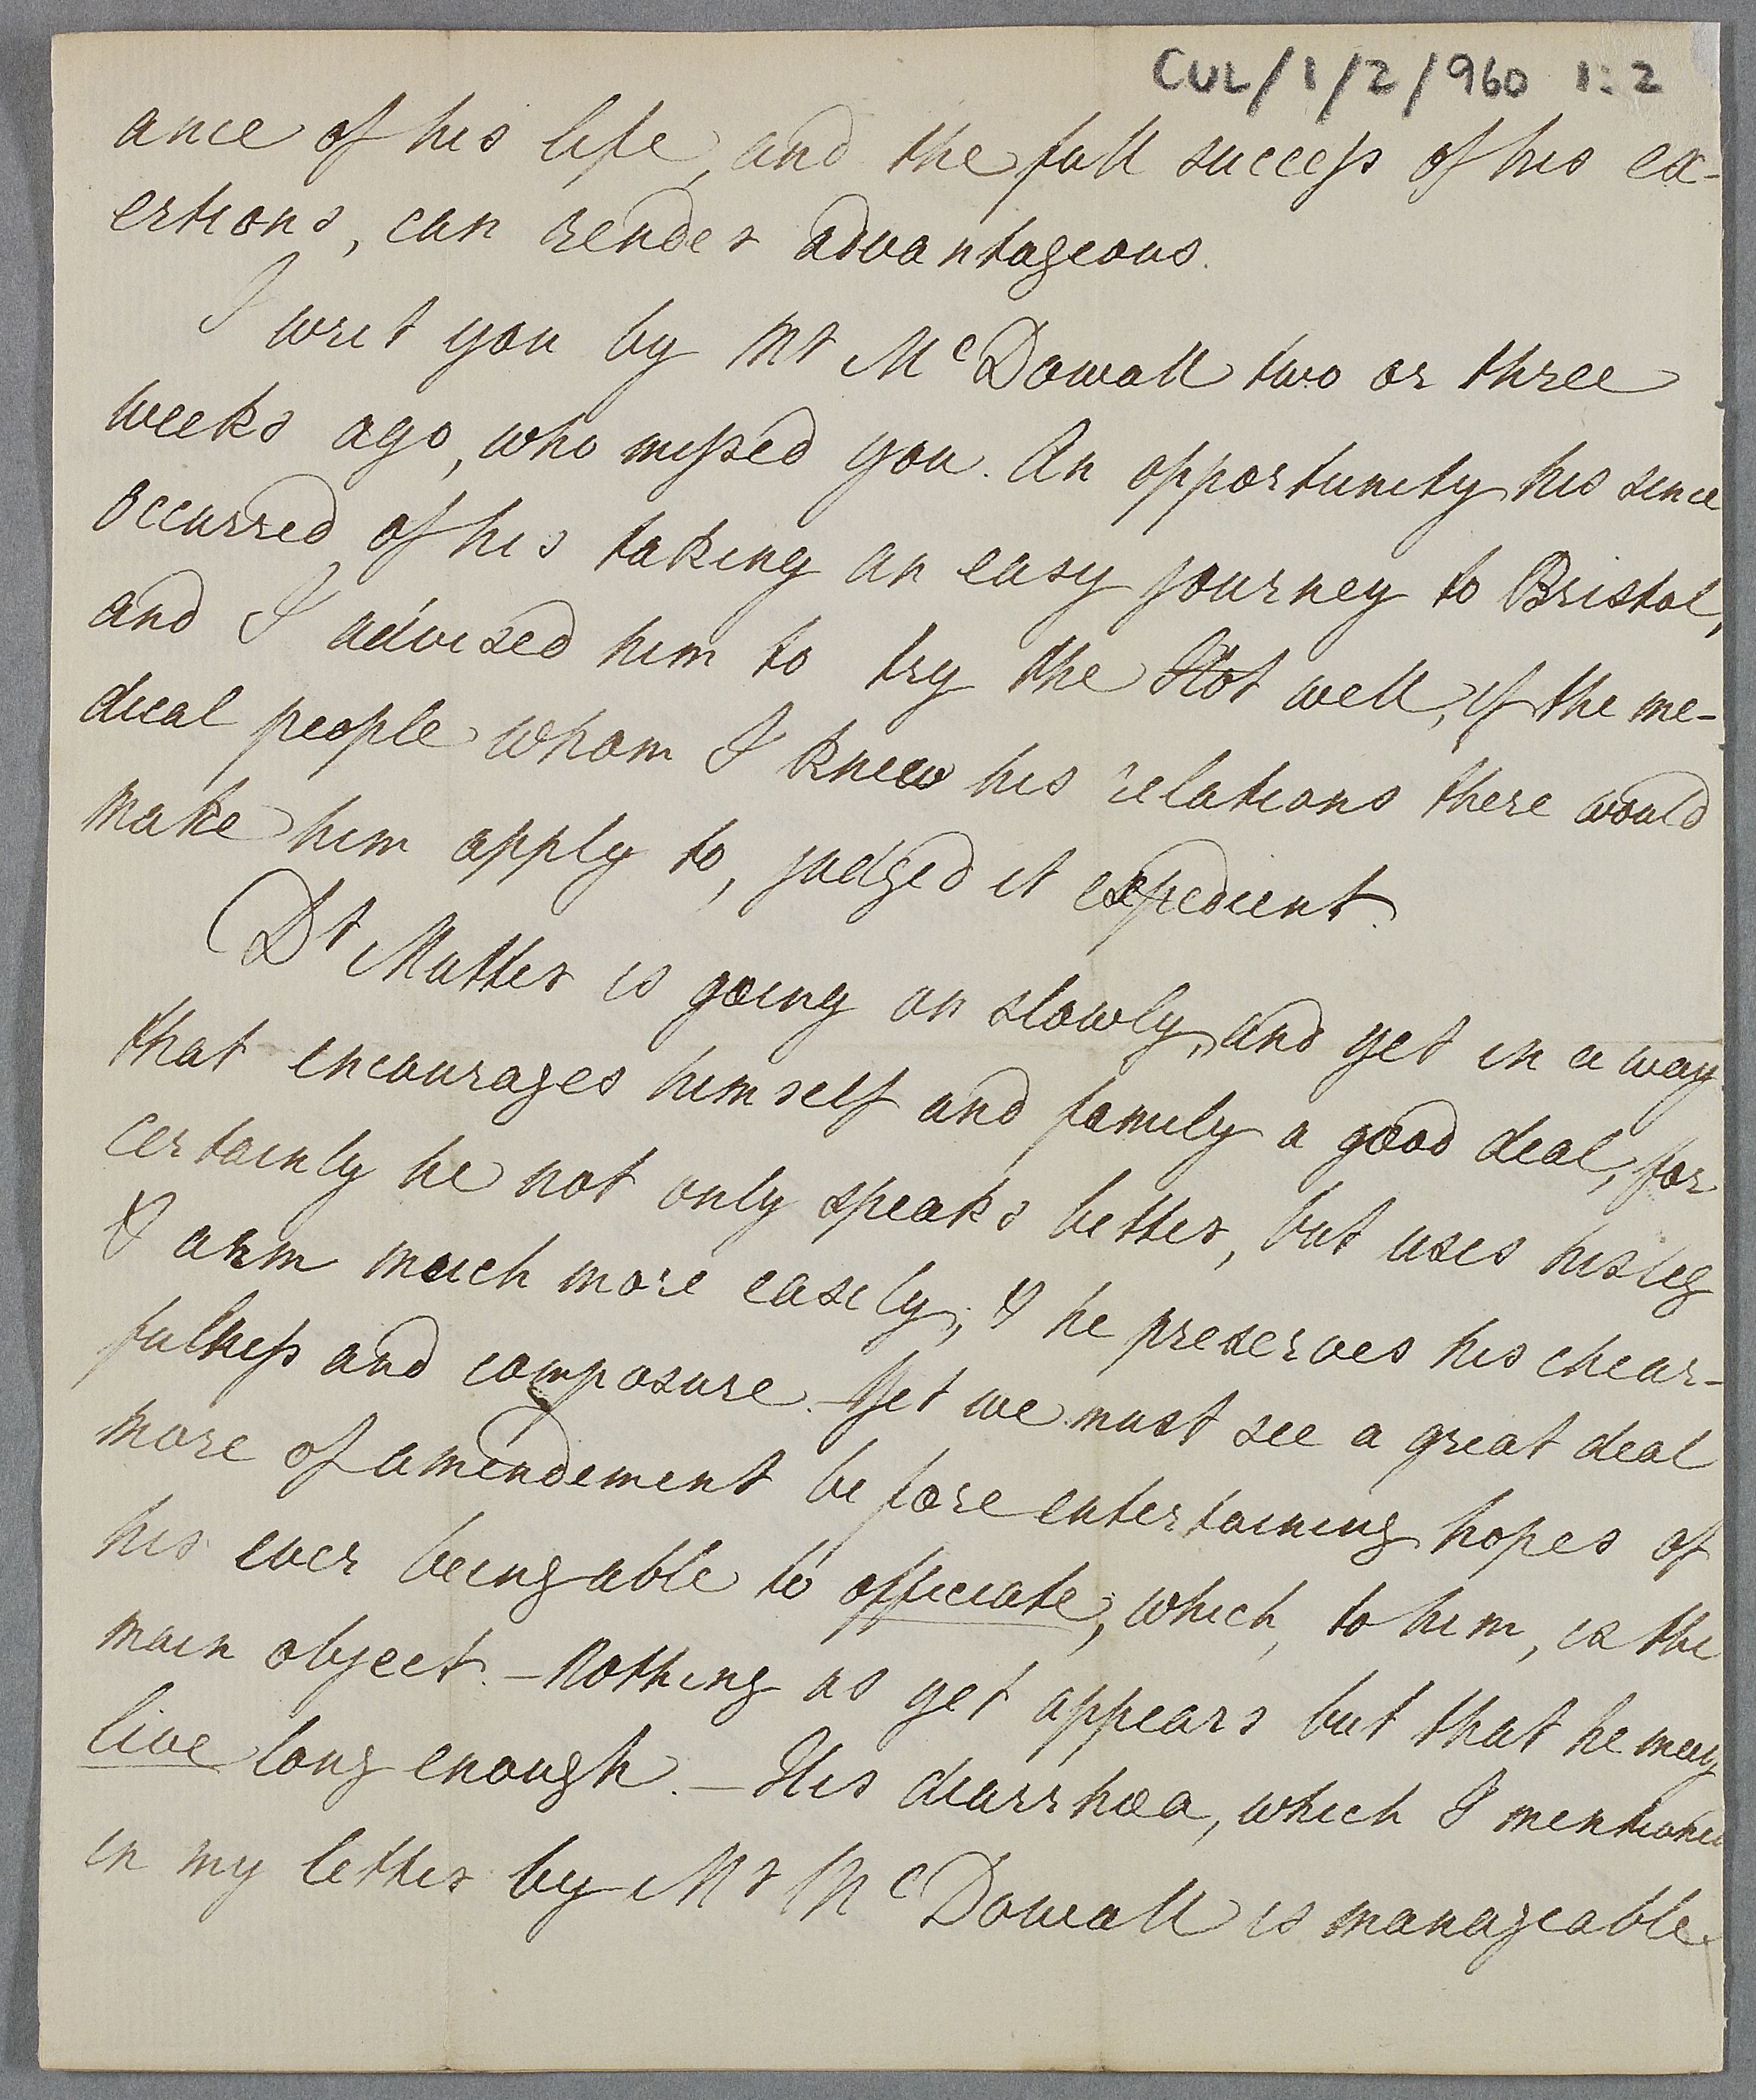 CUL/1/2/960 1:2
ance of his life, and the full success of his ex-
ertions, can render advantageous.
I writ you by Mr McDowall two or three
weeks ago, who missed you. An opportunity his since
occurred of his taking an easy journey to Bristol,
and I advised him to try the Hot well, if the me-
dical people whom I knew his relations there would
make him apply to, judged it expedient.
Dr Mutter is going on slowly, and yet in a way
that encourages himself and family a good deal, for
certainly he not only speaks better, but uses his leg
& arm much more easily; & he preserves his chear-
fulness and composure. - Yet we must see a great deal
more of amendement before entertaining hopes of
his ever being able to officiate, which, to him, is the
main object. - Nothing as yet appears but that he may
live long enough. - His diarrhœa, which I mentioned
in my letter by Mr McDowall is manageable